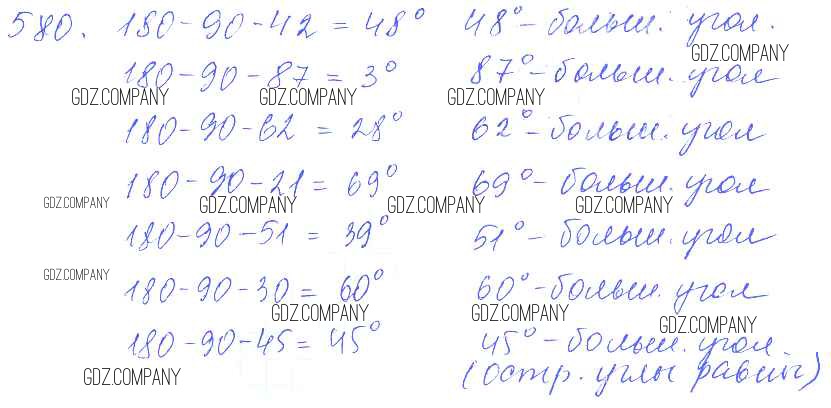 580. 180-90-42 = 48° 48° - больш. угол.
GDZ.COMPANY
180-90-87 = 3° 87° - больш. угол
GDZ.COMPANY GDZ.COMPANY GDZ.COMPANY
180-90-62 = 28° 62° - больш. угол
180-90-21 = 69° 69° - больш. угол
GDZ.COMPANY GDZ.COMPANY GDZ.COMPANY GDZ.COMPANY
180-90-51 = 39° 51° - больш. угол
GDZ.COMPANY
180-90-30 = 60° 60° - больш. угол
GDZ.COMPANY GDZ.COMPANY GDZ.COMPANY
180-90-45 = 45° 45° - больш. угол.
GDZ.COMPANY (остр. углы равны)